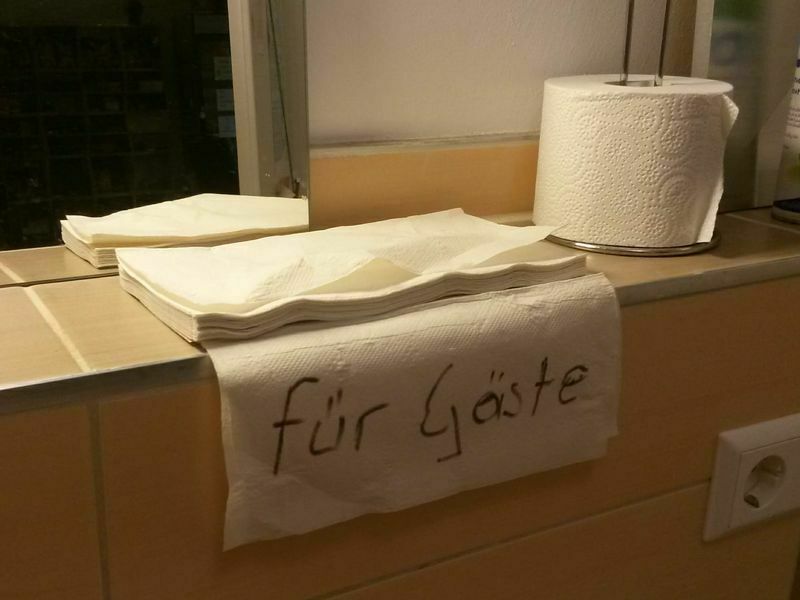 für Gäste